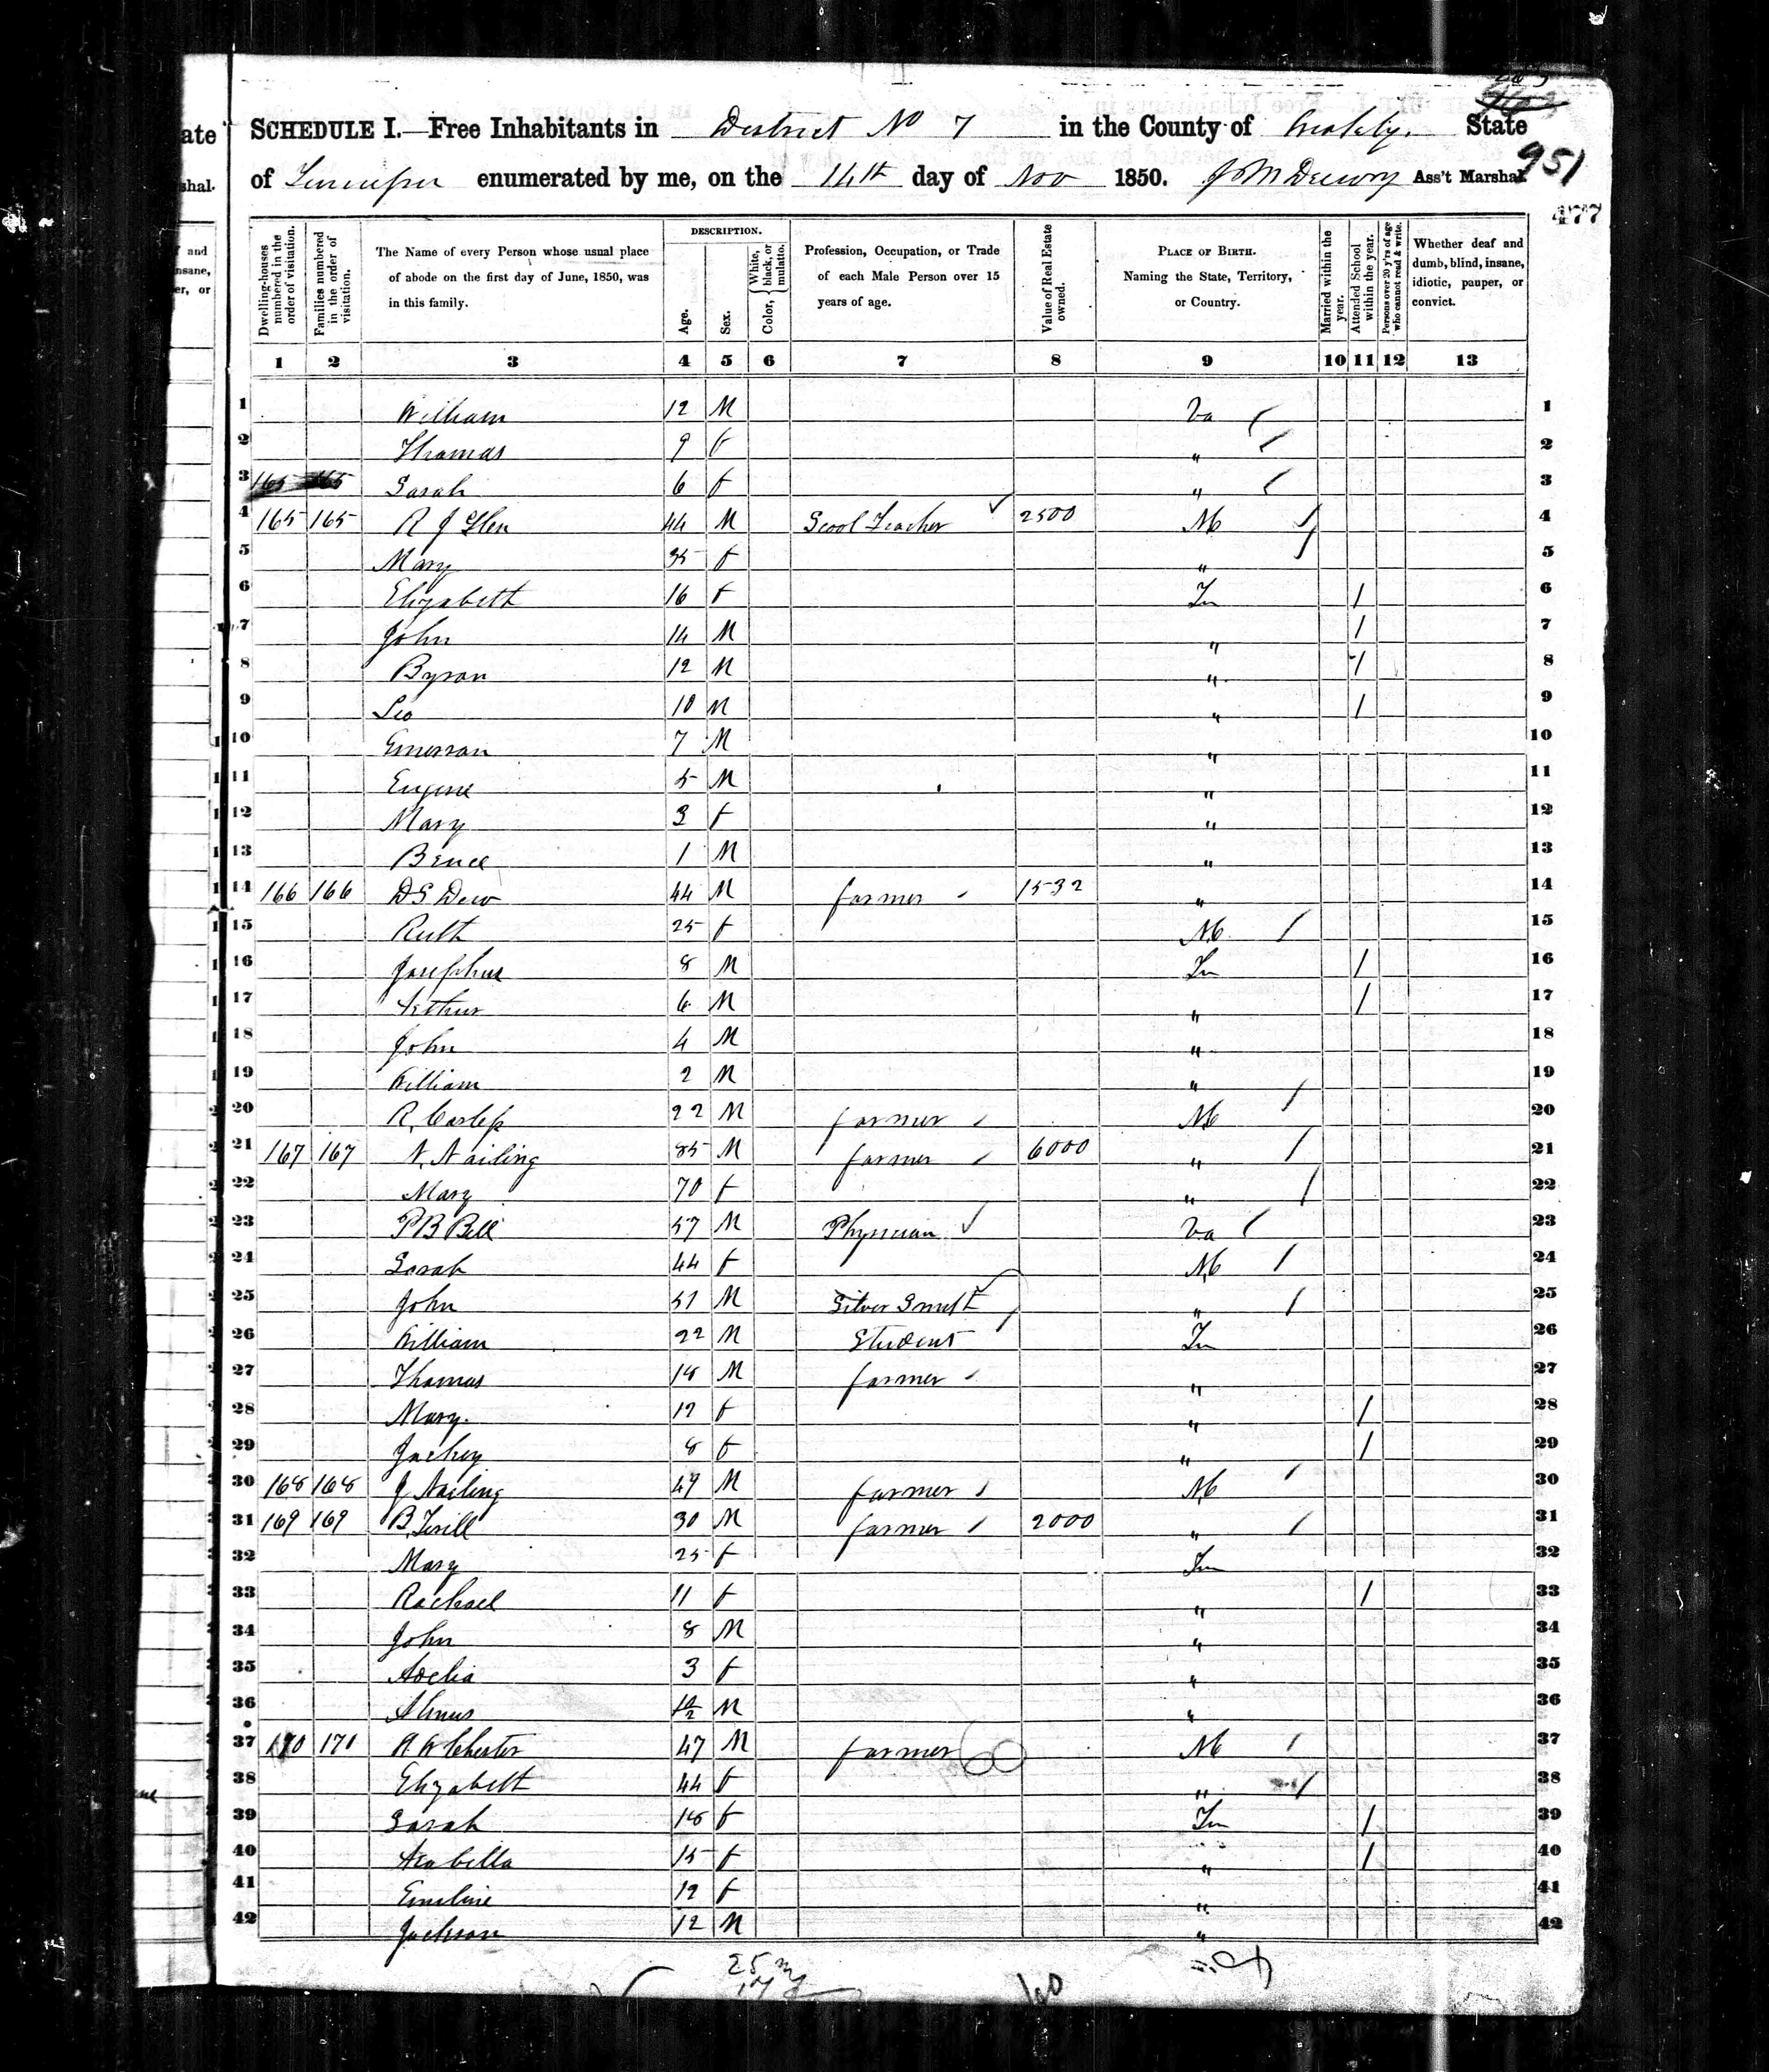 951
477
SCHEDULE I.—Free Inhabitants in District No 7 in the County of State
of enumerated by me, on the 14th day of Nov 1850. J M Ass't Marshal
DESCRIPTION.
Dwelling-houses numbered in the order of visitation.
Families numbered in the order of visitation.
The Name of every Person whose usual place of abode on the first day of June, 1850, was in this family.
Age.
Sex.
Color, { White, black, or mulatto.
Profession, Occupation, or Trade of each Male Person over 15 years of age.
Value of Real Estate owned.
PLACE OF BIRTH. Naming the State, Territory, or Country.
Married within the year.
Attended School within the year.
Persons over 20 y'rs of age who cannot read & write.
Whether deaf and dumb, blind, insane, idiotic, pauper, or convict.
1 2 3 4 5 6 7 8 9 10 11 12 13
1 William 12 M Va 1
2 Thomas 9 f " 2
3 165 165 Sarah 6 f " 3
4 165 165 R J Glen 44 M Scool Teacher 2500 NC 4
5 Mary 35 f " 5
6 Elizabeth 16 f Tn 1 6
7 John 14 M " 1 7
8 Byron 12 M " 1 8
9 Leo 10 M " 1 9
10 Emerson 7 M " 10
11 Eugene 5 M " 11
12 Mary 3 f " 12
13 Bruce 1 M " 13
14 166 166 D S Dew 44 M farmer 1532 " 14
15 Ruth 25 f NC 15
16 Josephus 8 M Tn 1 16
17 Arthur 6 M " 1 17
18 John 4 M " 18
19 William 2 M " 19
20 R. 22 M farmer NC 20
21 167 167 N. Nailing 85 M farmer 6000 " 21
22 Mary 70 f " 22
23 P B Bell 57 M Physician Va 23
24 Sarah 44 f NC 24
25 John 51 M Silver Smith " 25
26 William 22 M Student Tn 26
27 Thomas 18 M farmer " 27
28 Mary. 12 f " 1 28
29 8 f " 1 29
30 168 168 J Nailing 49 M farmer NC 30
31 169 169 B. Terill 30 M farmer 2000 " 31
32 Mary 25 f Tn 32
33 Rachael 11 f " 1 33
34 John 8 M " 34
35 Adelia 3 f " 35
36 M " 36
37 170 170 Chester 47 M farmer NC 37
38 Elizabeth 44 f " 38
39 Sarah 18 f Tn 1 39
40 Arabella 15 f " 1 40
41 Emeline 12 f " 41
42 Jackson 12 M " 42
25 m
17 f
60